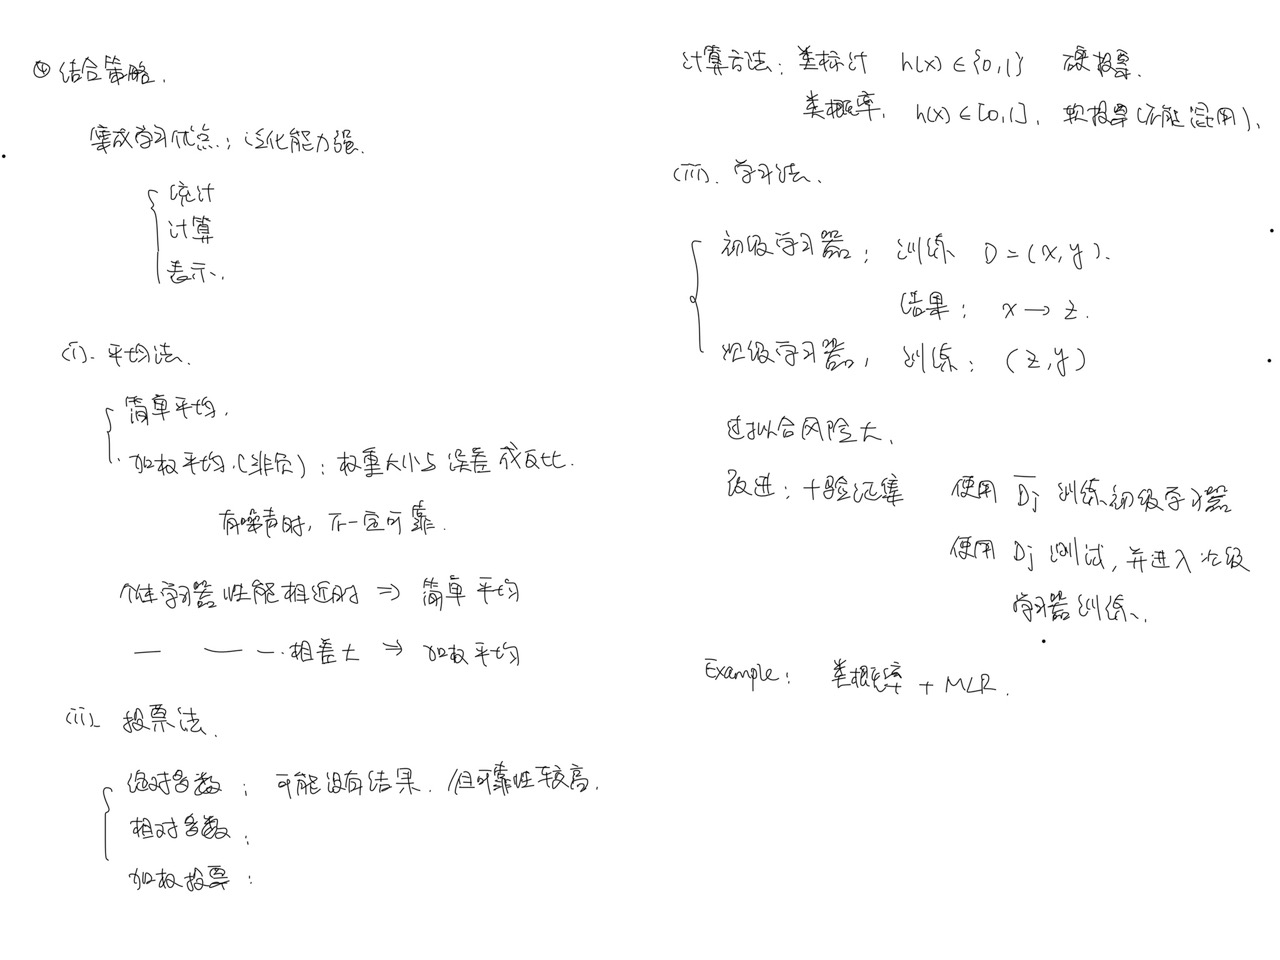 ④ 结合策略.
集成学习优点: 泛化能力强.
统计
计算
表示.
(i). 平均法.
简单平均.
加权平均.(非负): 权重大小与误差成反比.
有噪声时, 不一定可靠.
个体学习器性能相近时 ⇒ 简单平均
— — —.相差大 ⇒ 加权平均
(ii). 投票法.
绝对多数: 可能没有结果. 但可靠性较高.
相对多数:
加权投票:
计算方法: 类标记 h(x) ∈ {0,1} 硬投票.
类概率. h(x) ∈ [0,1]. 软投票 (不能混用).
(iii). 学习法.
初级学习器: 训练 D = (x, y).
结果: x → z.
次级学习器, 训练: (z, y)
过拟合风险大.
改进: +验证集 使用 D̅j 训练初级学习器
使用 Dj 测试, 并进入次级
学习器训练.
Example: 类概率 + MLR.